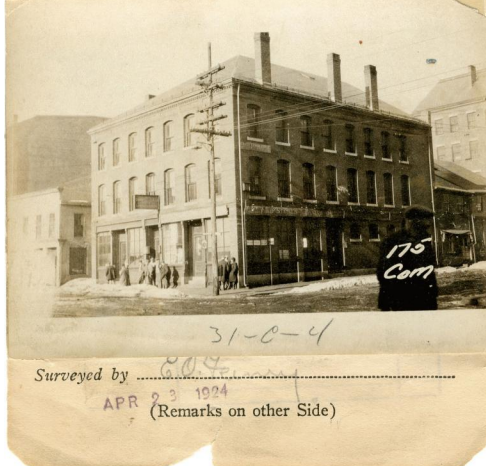 175
Com
31-C-4
Surveyed by
APR 23 1924
(Remarks on other Side)